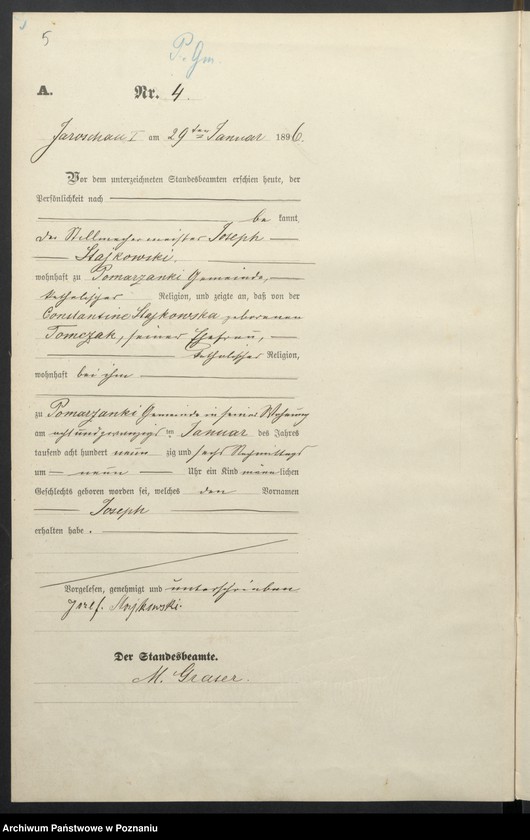 5
P. Gm.
A. Nr. 4.
Jaroschau I am 29ten Januar 1896.
Vor dem unterzeichneten Standesbeamten erschien heute, der
Persönlichkeit nach
be kannt,
der Stellmachermeister Joseph
Stajkowski,
wohnhaft zu Pomarzanki Gemeinde,
katholischer Religion, und zeigte an, daß von der
Constantine Stajkowska geborenen
Tomczak, seiner Ehefrau,
katholischer Religion,
wohnhaft bei ihm
zu Pomarzanki Gemeinde in seiner Wohnung
am achtundzwanzigsten Januar des Jahres
tausend acht hundert neun zig und sechs Nachmittags
um neun Uhr ein Kind männlichen
Geschlechts geboren worden sei, welches den Vornamen
Joseph
erhalten habe.
Vorgelesen, genehmigt und unterschrieben
Józef Stajkowski.
Der Standesbeamte.
M. Graser.
Archiwum Państwowe w Poznaniu